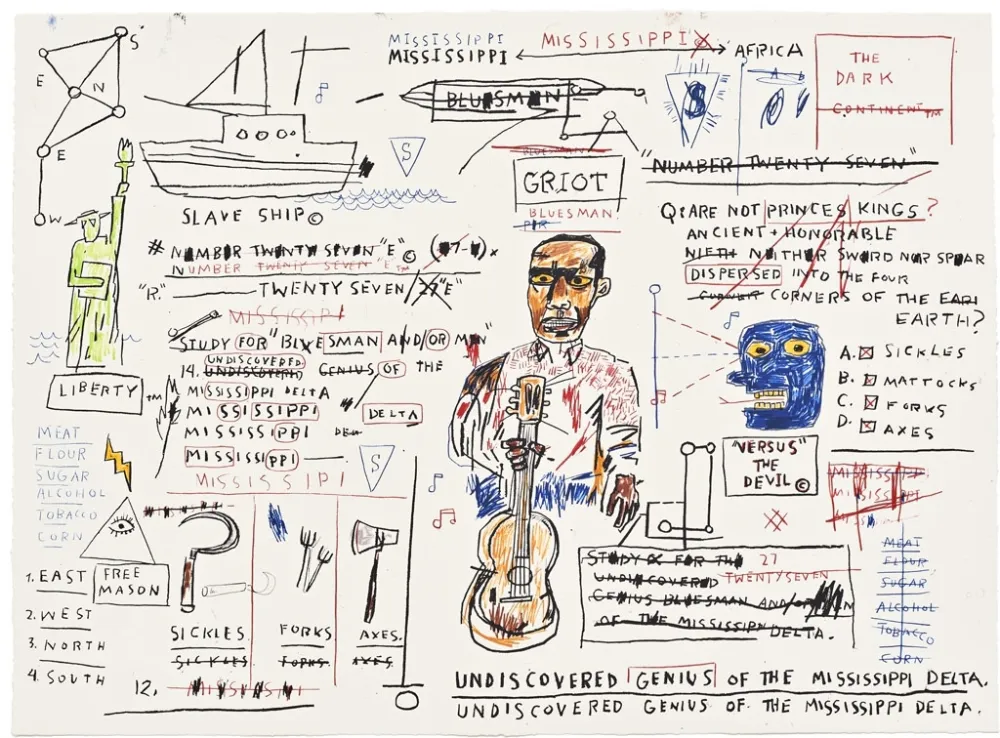 S
E
N
E
W
MISSISSIPPI
MISSISSIPPI
MISSISSIPPI
AFRICA
BLUESMAN
S
A B
THE
DARK
CONTINENT™
S
BLUESMAN
GRIOT
BLUESMAN
"NUMBER TWENTY SEVEN"
SLAVE SHIP©
# NUMBER TWENTY SEVEN "E"©
NUMBER TWENTY SEVEN "E"™
"R." TWENTY SEVEN/27"E"
MISSISSIPPI
STUDY FOR "BLUESMAN AND/OR MAN"
UNDISCOVERED
14. UNDISCOVERED GENIUS OF THE
MISSISSIPPI DELTA
MISSISSIPPI DELTA
MISSISSIPPI
MISSISSIPPI
MISSISSIPPI
S
LIBERTY™
MEAT
FLOUR
SUGAR
ALCOHOL
TOBACCO
CORN
1. EAST
2. WEST
3. NORTH
4. SOUTH
FREE
MASON
SICKLES
SICKLES
FORKS
FORKS
AXES.
AXES
12. MISSISSIPPI
Q: ARE NOT PRINCES KINGS?
ANCIENT + HONORABLE
NIETH NEITHER SWORD NOR SPEAR
DISPERSED INTO THE FOUR
CORNER CORNERS OF THE EARI
EARTH?
A. SICKLES
B. MATTOCKS
C. FORKS
D. AXES
"VERSUS"
THE
DEVIL©
MISSISSIPPI
MISSISSIPPI
MEAT
FLOUR
SUGAR
ALCOHOL
TOBACCO
CORN
STUDY FOR THE 27
UNDISCOVERED TWENTYSEVEN
GENIUS BLUESMAN AND/OR MAN
OF THE MISSISSIPPI DELTA.
UNDISCOVERED GENIUS OF THE MISSISSIPPI DELTA.
UNDISCOVERED GENIUS OF THE MISSISSIPPI DELTA.